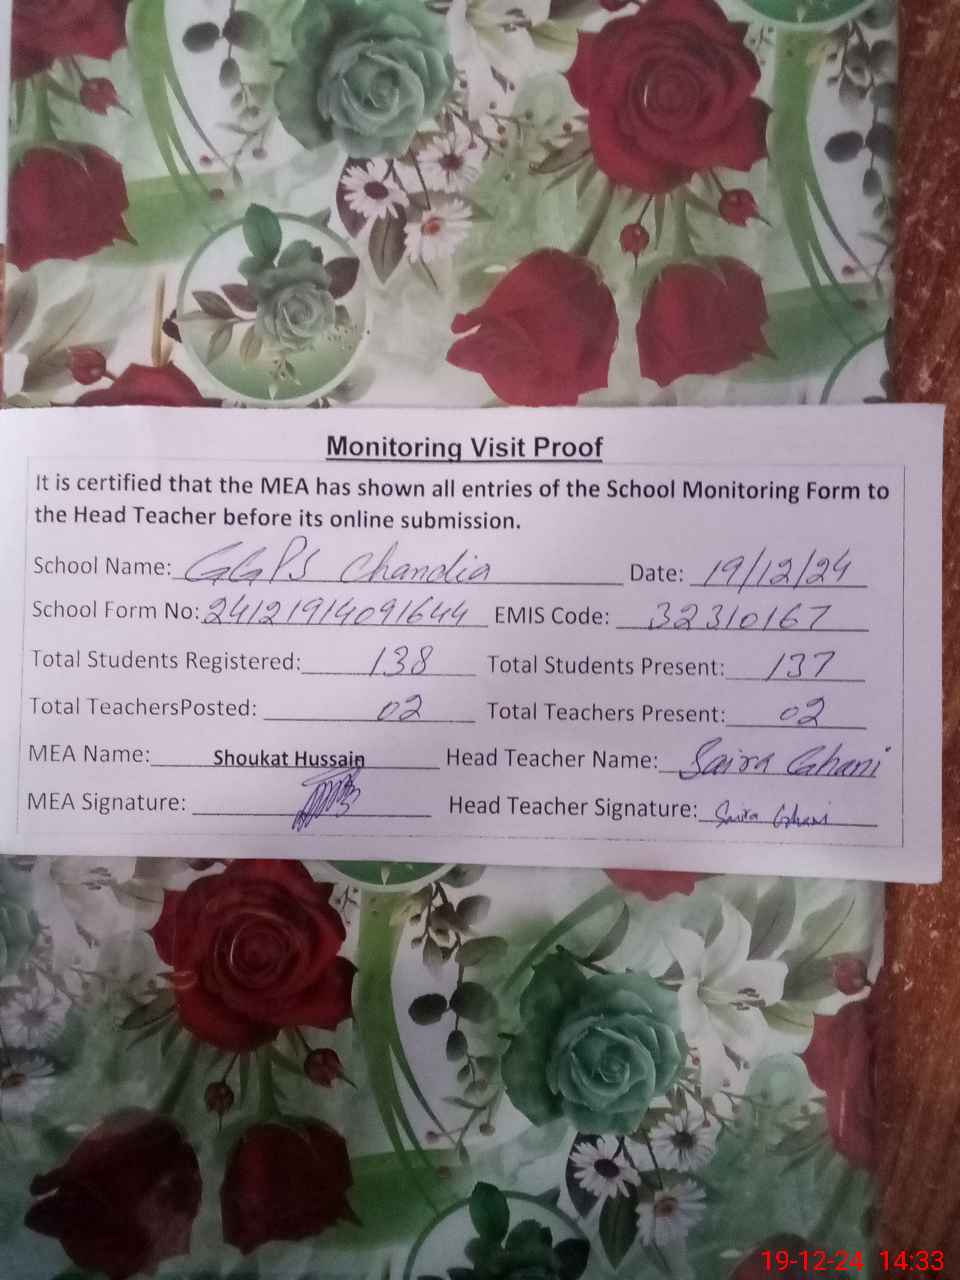 Monitoring Visit Proof
It is certified that the MEA has shown all entries of the School Monitoring Form to
the Head Teacher before its online submission.
School Name: GGPS Chandia Date: 19/12/24
School Form No: 24121914091644 EMIS Code: 32310167
Total Students Registered: 138 Total Students Present: 137
Total TeachersPosted: 02 Total Teachers Present: 02
MEA Name: Shoukat Hussain Head Teacher Name: Saira Ghani
MEA Signature: Head Teacher Signature: Saira Ghani
19-12-24 14:33